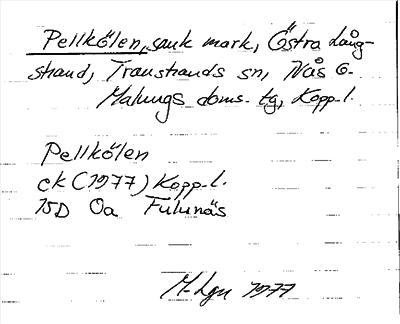 Pellkölen, sank mark, Östra Lång-
strand, Transtrands sn, Nås o.
Malungs doms. tg, Kopp.l.
Pellkölen
ek (1977) Kopp.l.
15D Oa Fulunäs
M-Lgn 1977